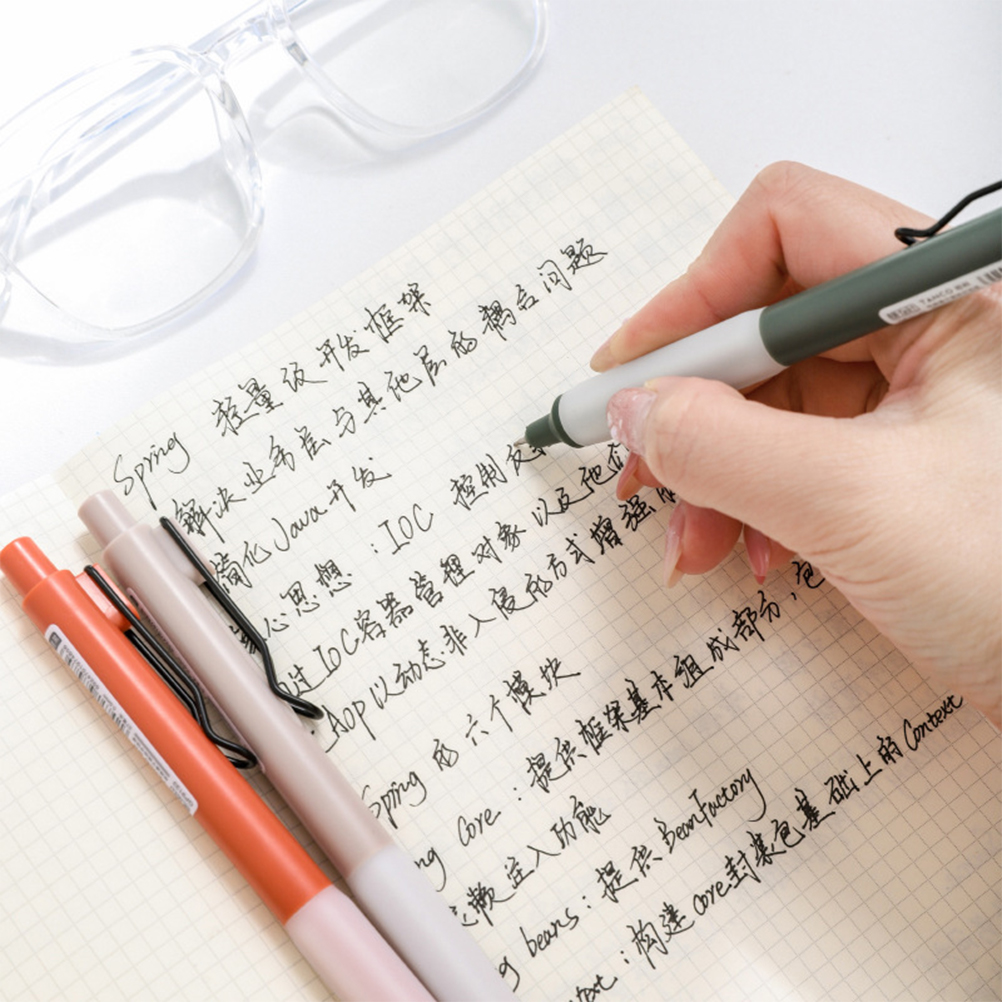 Spring 轻量级开发框架
解决业务层与其他层的耦合问题
简化Java开发
心思想：IOC 控制反
过IOC容器管理对象以及他
AOP以动态非入侵的方式增强
Spring 的六个模块
ng Core：提供框架基本组成部分，包
依赖注入功能
g beans：提供BeanFactory
text：构建Core封装包基础上的Context
TAMCO